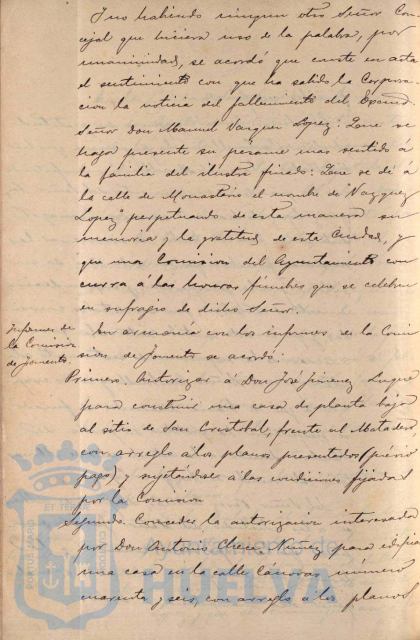 Y no habiendo ningun otro Señor Con
cejal que hiciera uso de la palabra, por
unanimidad, se acordó que conste en acta
el sentimiento con que ha sabido la Corpora
cion la noticia del fallecimiento del Excmo
Señor Don Manuel Vazquez Lopez: Que se
haga presente su pésame mas sentido á
la familia del ilustre finado: Que se dé á
la calle de Monasterio el nombre de "Vazquez
Lopez" perpetuando de esta manera su
memoria y la gratitud de esta Ciudad, y
que una Comision del Ayuntamiento con
curra á las honras fúnebres que se celebren
en sufragio de dicho Señor.
Informes de
la Comision
de Fomento.
En armonía con los informes de la Comi
sion de Fomento se acordó:
Primero. Autorizar á Don José Jimenez Luque
para construir una casa de planta baja
al sitio de San Cristobal, frente al Matadero
con arreglo á los planos presentados (prévio
pago) y sujetándose á las condiciones fijadas
por la Comision
Segundo. Conceder la autorizacion interesada
por Don Antonio Checa Nuñez para edificar
una casa en la calle Cánovas número
cuarenta y seis, con arreglo á los planos
PORTUS MARIS
ET TERRAE
CUSTODIA
Ayuntamiento de
HUELVA